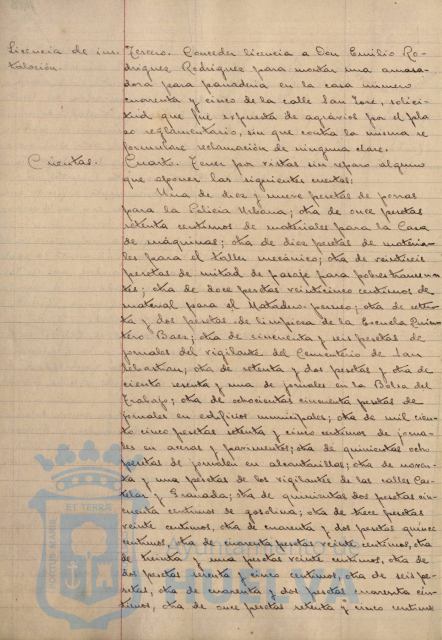 Licencia de ins-
talación.
Tercero. Conceder licencia a Don Emilio Ro-
driguez Rodriguez para montar una amasa-
dora para panaderia en la casa numero
cuarenta y cinco de la calle San José, solici-
tud que fué expuesta de agravios por el pla-
zo reglamentario, sin que contra la misma se
formulare reclamación de ninguna clase.
Cuentas.
Cuarto. Tener por vistas sin reparo alguno
que oponer las siguientes cuentas:
Una de diez y nueve pesetas de porras
para la Policia Urbana; otra de once pesetas
setenta centimos de materiales para la Casa
de máquinas; otra de diez pesetas de materia-
les para el taller mecánico; otra de veintiseis
pesetas de mitad de pasaje para pobres transeun-
tes; otra de doce pesetas veinticinco centimos de
material para el Matadero; otra de seten-
ta y dos pesetas de limpieza de la Escuela Quin-
tero Baez; otra de cincuenta y seis pesetas de
jornales del vigilante del Cementerio de San
Sebastian; otra de setenta y dos pesetas y otra de
ciento sesenta y una de jornales en la Bolsa del
Trabajo; otra de ochocientas cincuenta pesetas de
jornales en edificios municipales; otra de mil cien-
to cinco pesetas setenta y cinco centimos de jorna-
les en aceras y pavimentos; otra de quinientas ocho
pesetas de jornales en alcantarillas; otra de noven-
ta y una pesetas de los vigilantes de las calles Cas-
telar y Granada; otra de quinientas dos pesetas cin-
cuenta centimos de gasolina; otra de trece pesetas
veinte centimos, otra de cuarenta y dos pesetas quince
centimos, otra de cuarenta pesetas veinte centimos, otra
de treinta y una pesetas veinte centimos, otra de
dos pesetas sesenta y cinco centimos, otra de seis pe-
setas, otra de cuarenta y dos pesetas cuarenta cén-
timos, otra de once pesetas setenta y cinco centimos
PORTUS MARIS
ET TERRAE CUSTODIA
Ayuntamiento de
HUELVA